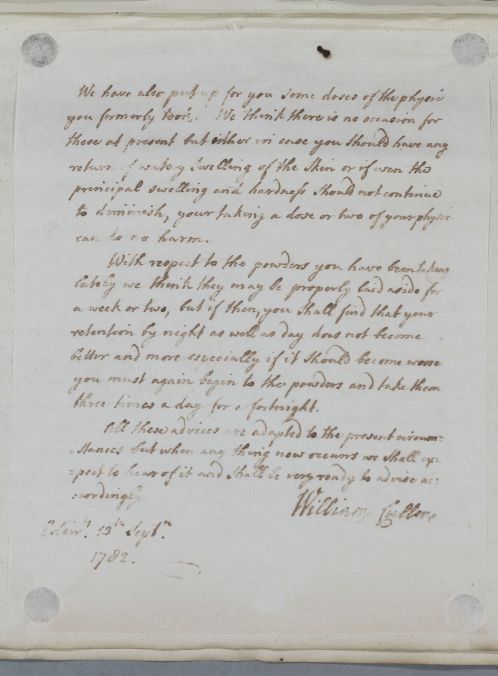 We have also put up for you some doses of the physic
you formerly took. We think there is no occasion for
these at present but either in case you should have any
return of watery swelling of the skin or if even the
principal swelling and hardness should not continue
to diminish, your taking a dose or two of your physic
can do no harm.
With respect to the powders you have been taking
lately we think they may be properly laid aside for
a week or two, but if then, you shall find that your
retention by night as well as day does not become
better and more especially if it should become worse
you must again begin to the powders and take them
three times a day for a fortnight.
All these advices are adapted to the present circum=
=stances but when any thing new occurrs we shall ex=
=pect to hear of it and shall be very ready to advise ac=
=cordingly
William Cullen
Edinr. 13th Septr.
1782.